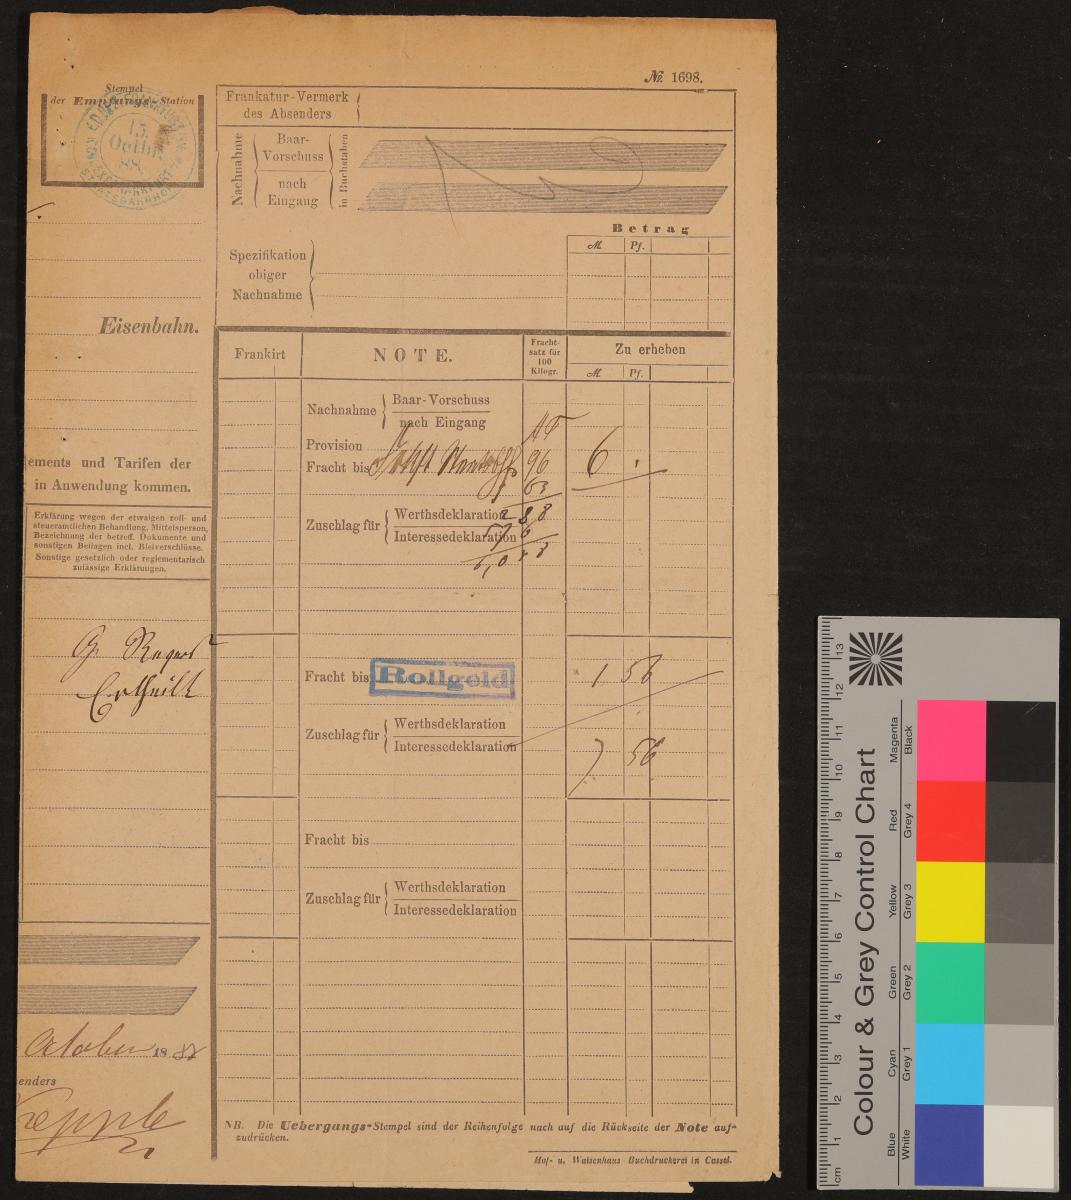 № 1698.
Stempel
der Empfangs-Station
15.
Octbr.
88.
Frankatur-Vermerk
des Absenders
Nachnahme
Baar-
Vorschuss
nach
Eingang
in Buchstaben
Betrag
M. Pf.
Spezifikation
obiger
Nachnahme
Eisenbahn.
ements und Tarifen der
in Anwendung kommen.
Erklärung wegen der etwaigen zoll- und
steueramtlichen Behandlung, Mittelsperson,
Bezeichnung der betreff. Dokumente und
sonstigen Beilagen incl. Bleiverschlüsse.
Sonstige gesetzlich oder reglementarisch
zulässige Erklärungen.
October 1888
senders
Frankirt
NOTE.
Fracht-
satz für
100
Kilogr.
Zu erheben
M. Pf.
Nachnahme
Baar-Vorschuss
nach Eingang
Provision
Fracht bis
96
6
63
Zuschlag für
Werthsdeklaration
288
Interessedeklaration
576
Fracht bis Rollgeld 1 56
Zuschlag für
Werthsdeklaration
Interessedeklaration
7 56
Fracht bis
Zuschlag für
Werthsdeklaration
Interessedeklaration
NB. Die Uebergangs-Stempel sind der Reihenfolge nach auf die Rückseite der Note auf-
zudrücken.
Hof- u. Waisenhaus-Buchdruckerei in Cassel.
Colour & Grey Control Chart
Blue Cyan Green Yellow Red Magenta
White Grey 1 Grey 2 Grey 3 Grey 4 Black
cm 1 2 3 4 5 6 7 8 9 10 11 12 13